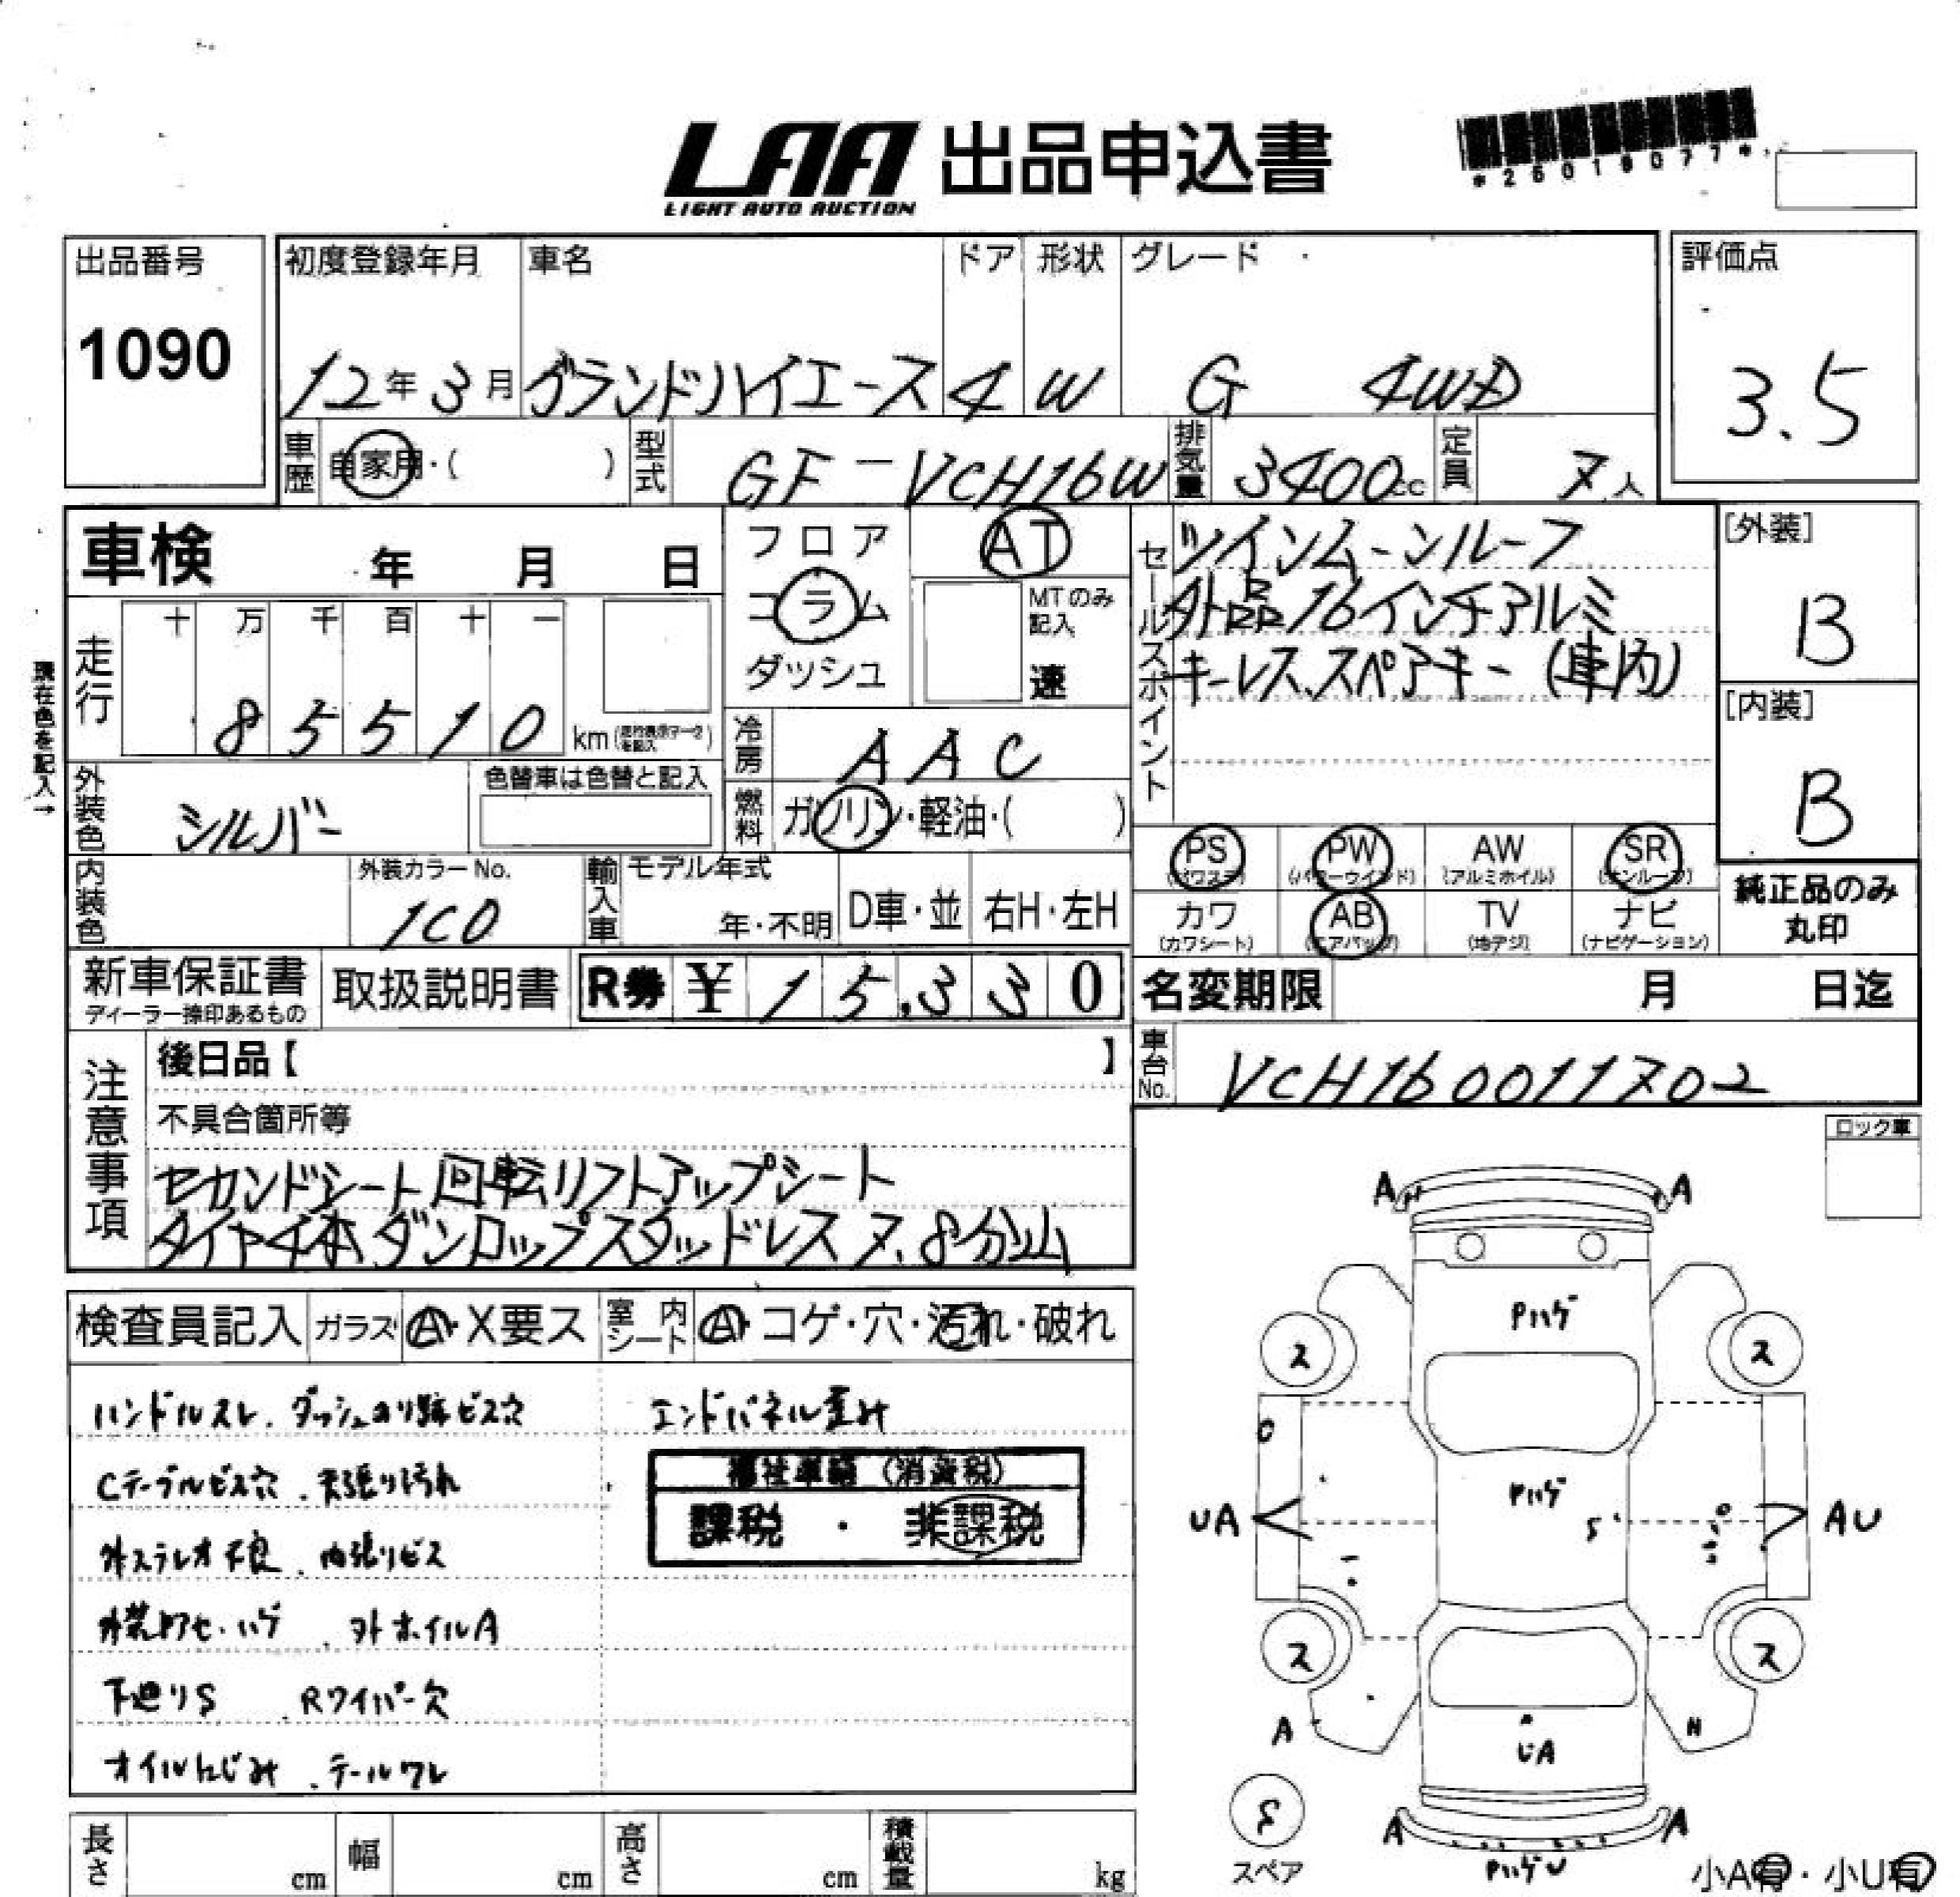 LAA 出品申込書
LIGHT AUTO AUCTION
*26019077*
出品番号
1090
初度登録年月 車名 ドア 形状 グレード
12年3月 グランドハイエース 4 W G 4WD
評価点
3.5
車歴 自家用・( ) 型式 GF-VCH16W 排気量 3400cc 定員 7人
車検 年 月 日
フロア
コラム
ダッシュ
AT
MTのみ記入
速
セールスポイント
ツインムーンルーフ
外品16インチアルミ
キーレス、スペアキー(車内)
[外装]
B
[内装]
B
現在色を記入→
走行 十 万 千 百 十 一
85510 km
冷房 AAC
外装色 シルバー
色替車は色替と記入
燃料 ガソリン・軽油・( )
PS PW AW SR
(パワステ) (パワーウインド) (アルミホイル) (サンルーフ)
カワ AB TV ナビ
(カワシート) (エアバッグ) (地デジ) (ナビゲーション)
純正品のみ
丸印
内装色 外装カラーNo. 1C0
輸入車 モデル年式 年・不明 D車・並 右H・左H
新車保証書 取扱説明書 R券 ¥15,330
ディーラー捺印あるもの
名変期限 月 日迄
車台No. VCH160011702
注意事項
後日品【 】
不具合箇所等
セカンドシート回転リフトアップシート
タイヤ4本ダンロップスタッドレス7、8分山
ロック車
検査員記入 ガラス A・X要ス 室内シート A・コゲ・穴・汚れ・破れ
ハンドルスレ、ダッシュのり跡ビス穴 エンドパネル歪み
Cテーブルビス穴、天張り汚れ
福祉車輌 (消費税)
課税 ・ 非課税
外ステレオ不良、内張りビス
外装アセ・ハゲ、外ホイルA
下廻りS、Rワイパー欠
オイルにじみ、テールワレ
A A
Pハゲ
ス ス
Pハゲ
UA S AU
ス ス
A UA
S
スペア
A A
PハゲU
小A有・小U有
長さ cm 幅 cm 高さ cm 積載量 kg